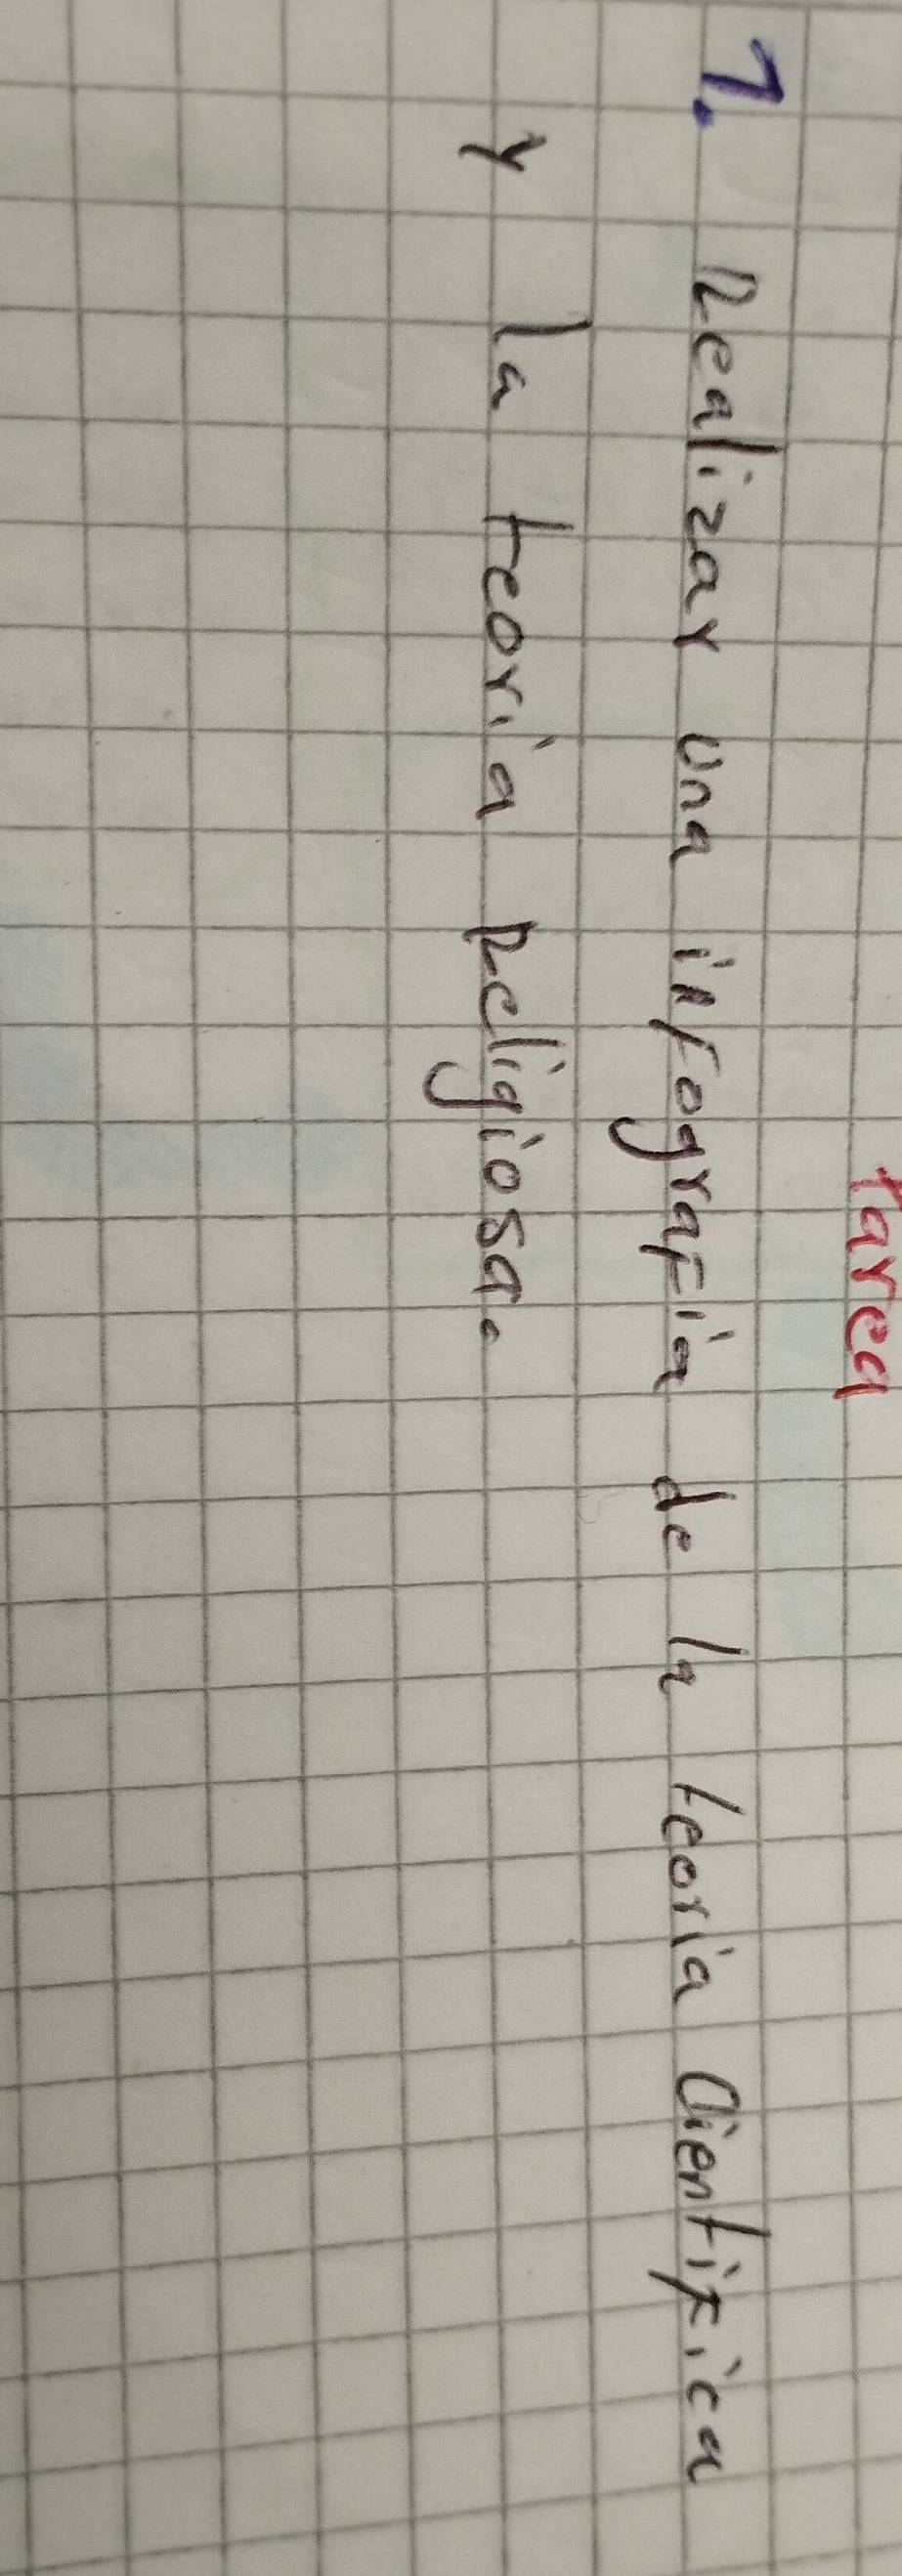 tarea
1. Realizar una infografía de la teoría Científica
y la teoría Religiosa.